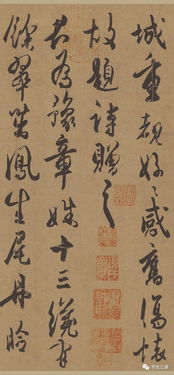 城重覩好〻感舊傷懷
故題詩贈之
君為豫章姝十三纔有
餘翠茁鳳生尾丹臉